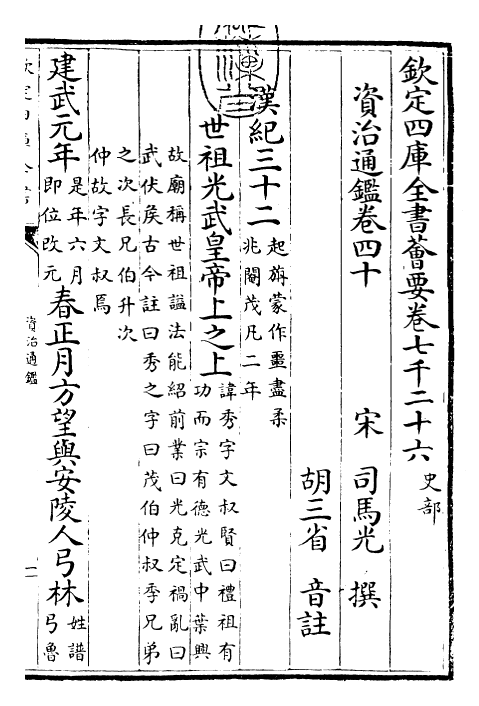 欽定四庫全書薈要卷七千二十六 史部
資治通鑑卷四十 宋 司馬光 撰
胡三省 音註
漢紀三十二 起旃蒙作噩盡柔
兆閹茂凡二年
世祖光武皇帝上之上 諱秀字文叔賢曰禮祖有
功而宗有德光武中葉興
故廟稱世祖諡法能紹前業曰光克定禍亂曰
武伏侯古今註曰秀之字曰茂伯仲叔季兄弟
之次長兄伯升次
仲故字文叔焉
建武元年 是年六月
即位改元 春正月方望與安陵人弓林 姓譜
弓魯
資治通鑑
一